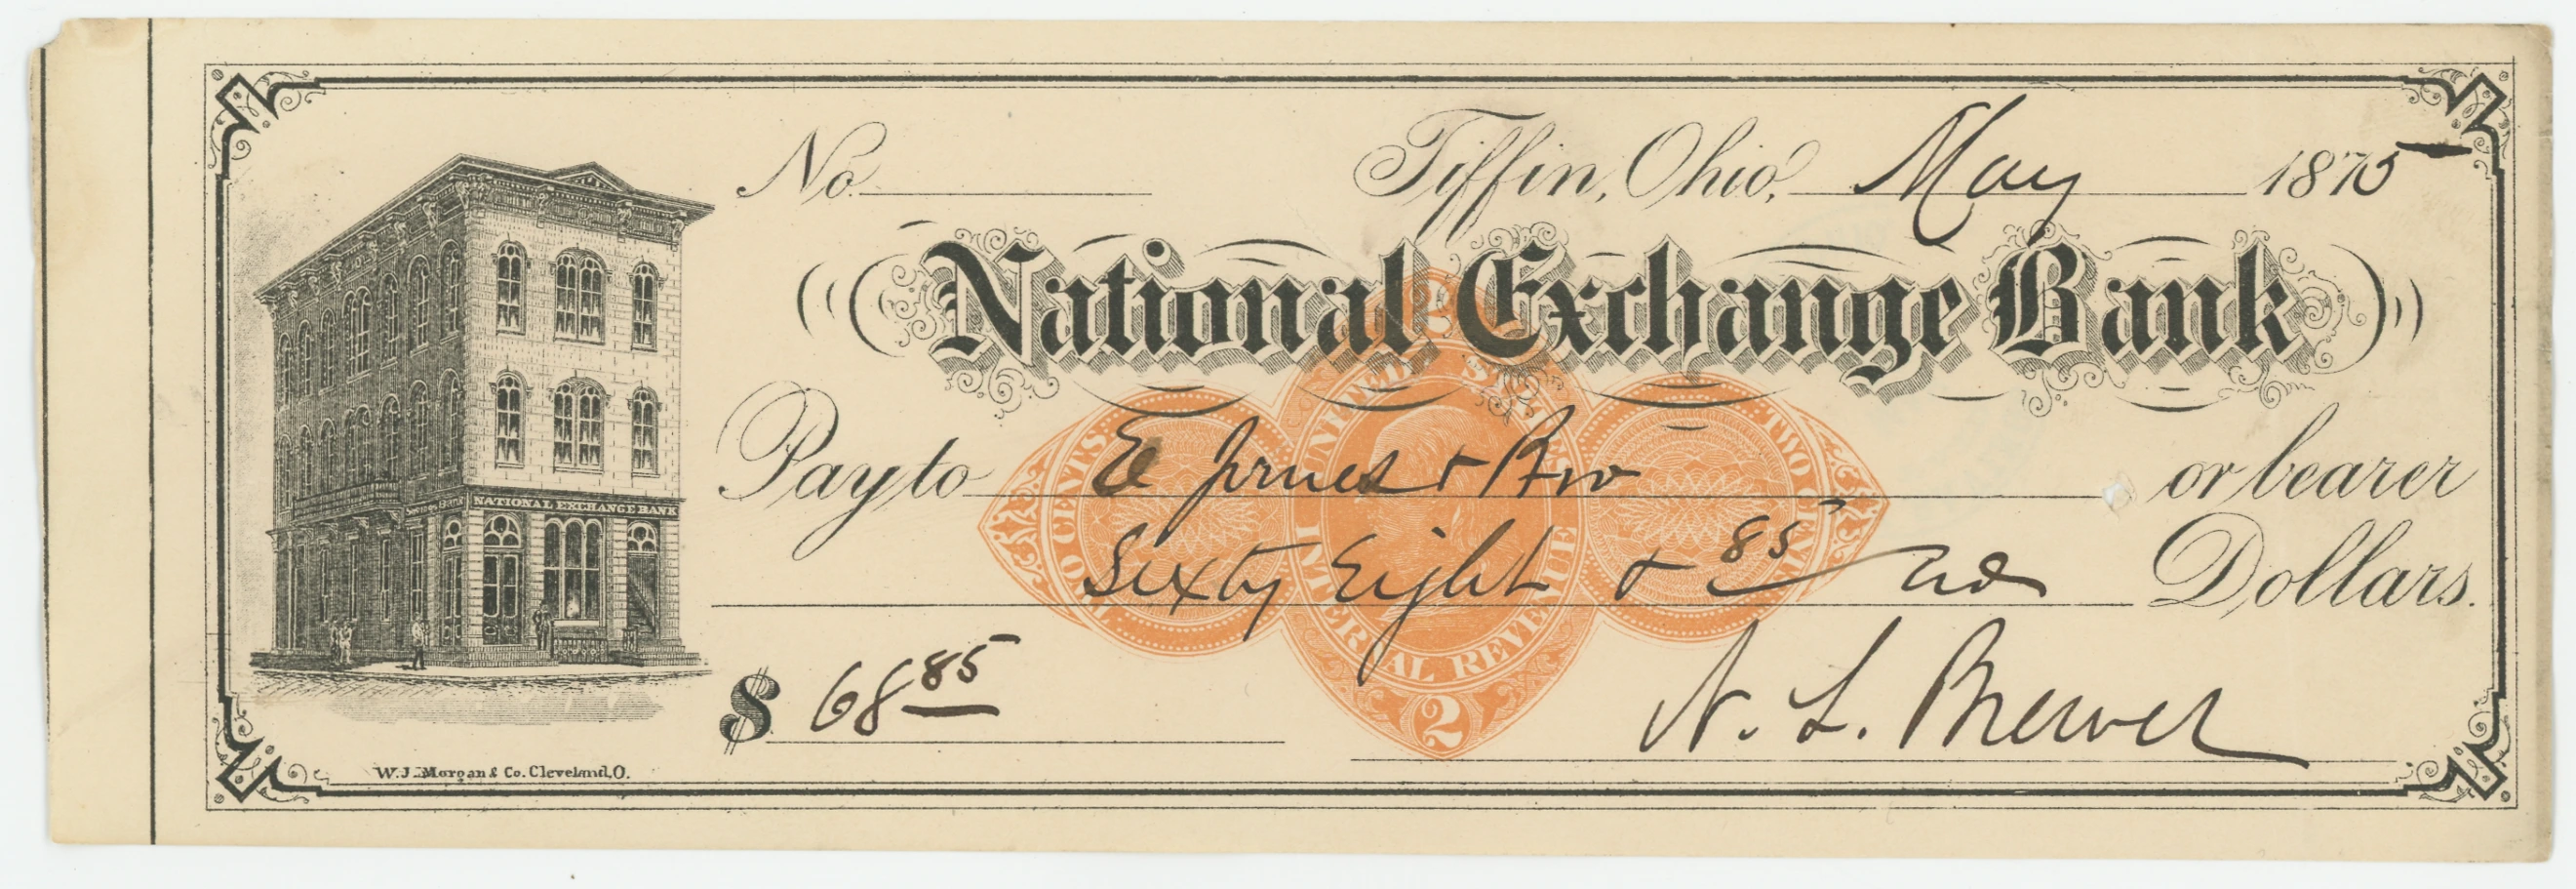 No. Tiffin, Ohio, May 1875
National Exchange Bank
Pay to E Jones + Bro or bearer
Sixty Eight + 85 no Dollars.
$ 68 85
N. L. Brewer
NATIONAL EXCHANGE BANK
TWO CENTS. UNITED STATES TWO CENTS
INTERNAL REVENUE
2
W. J. Morgan & Co. Cleveland, O.